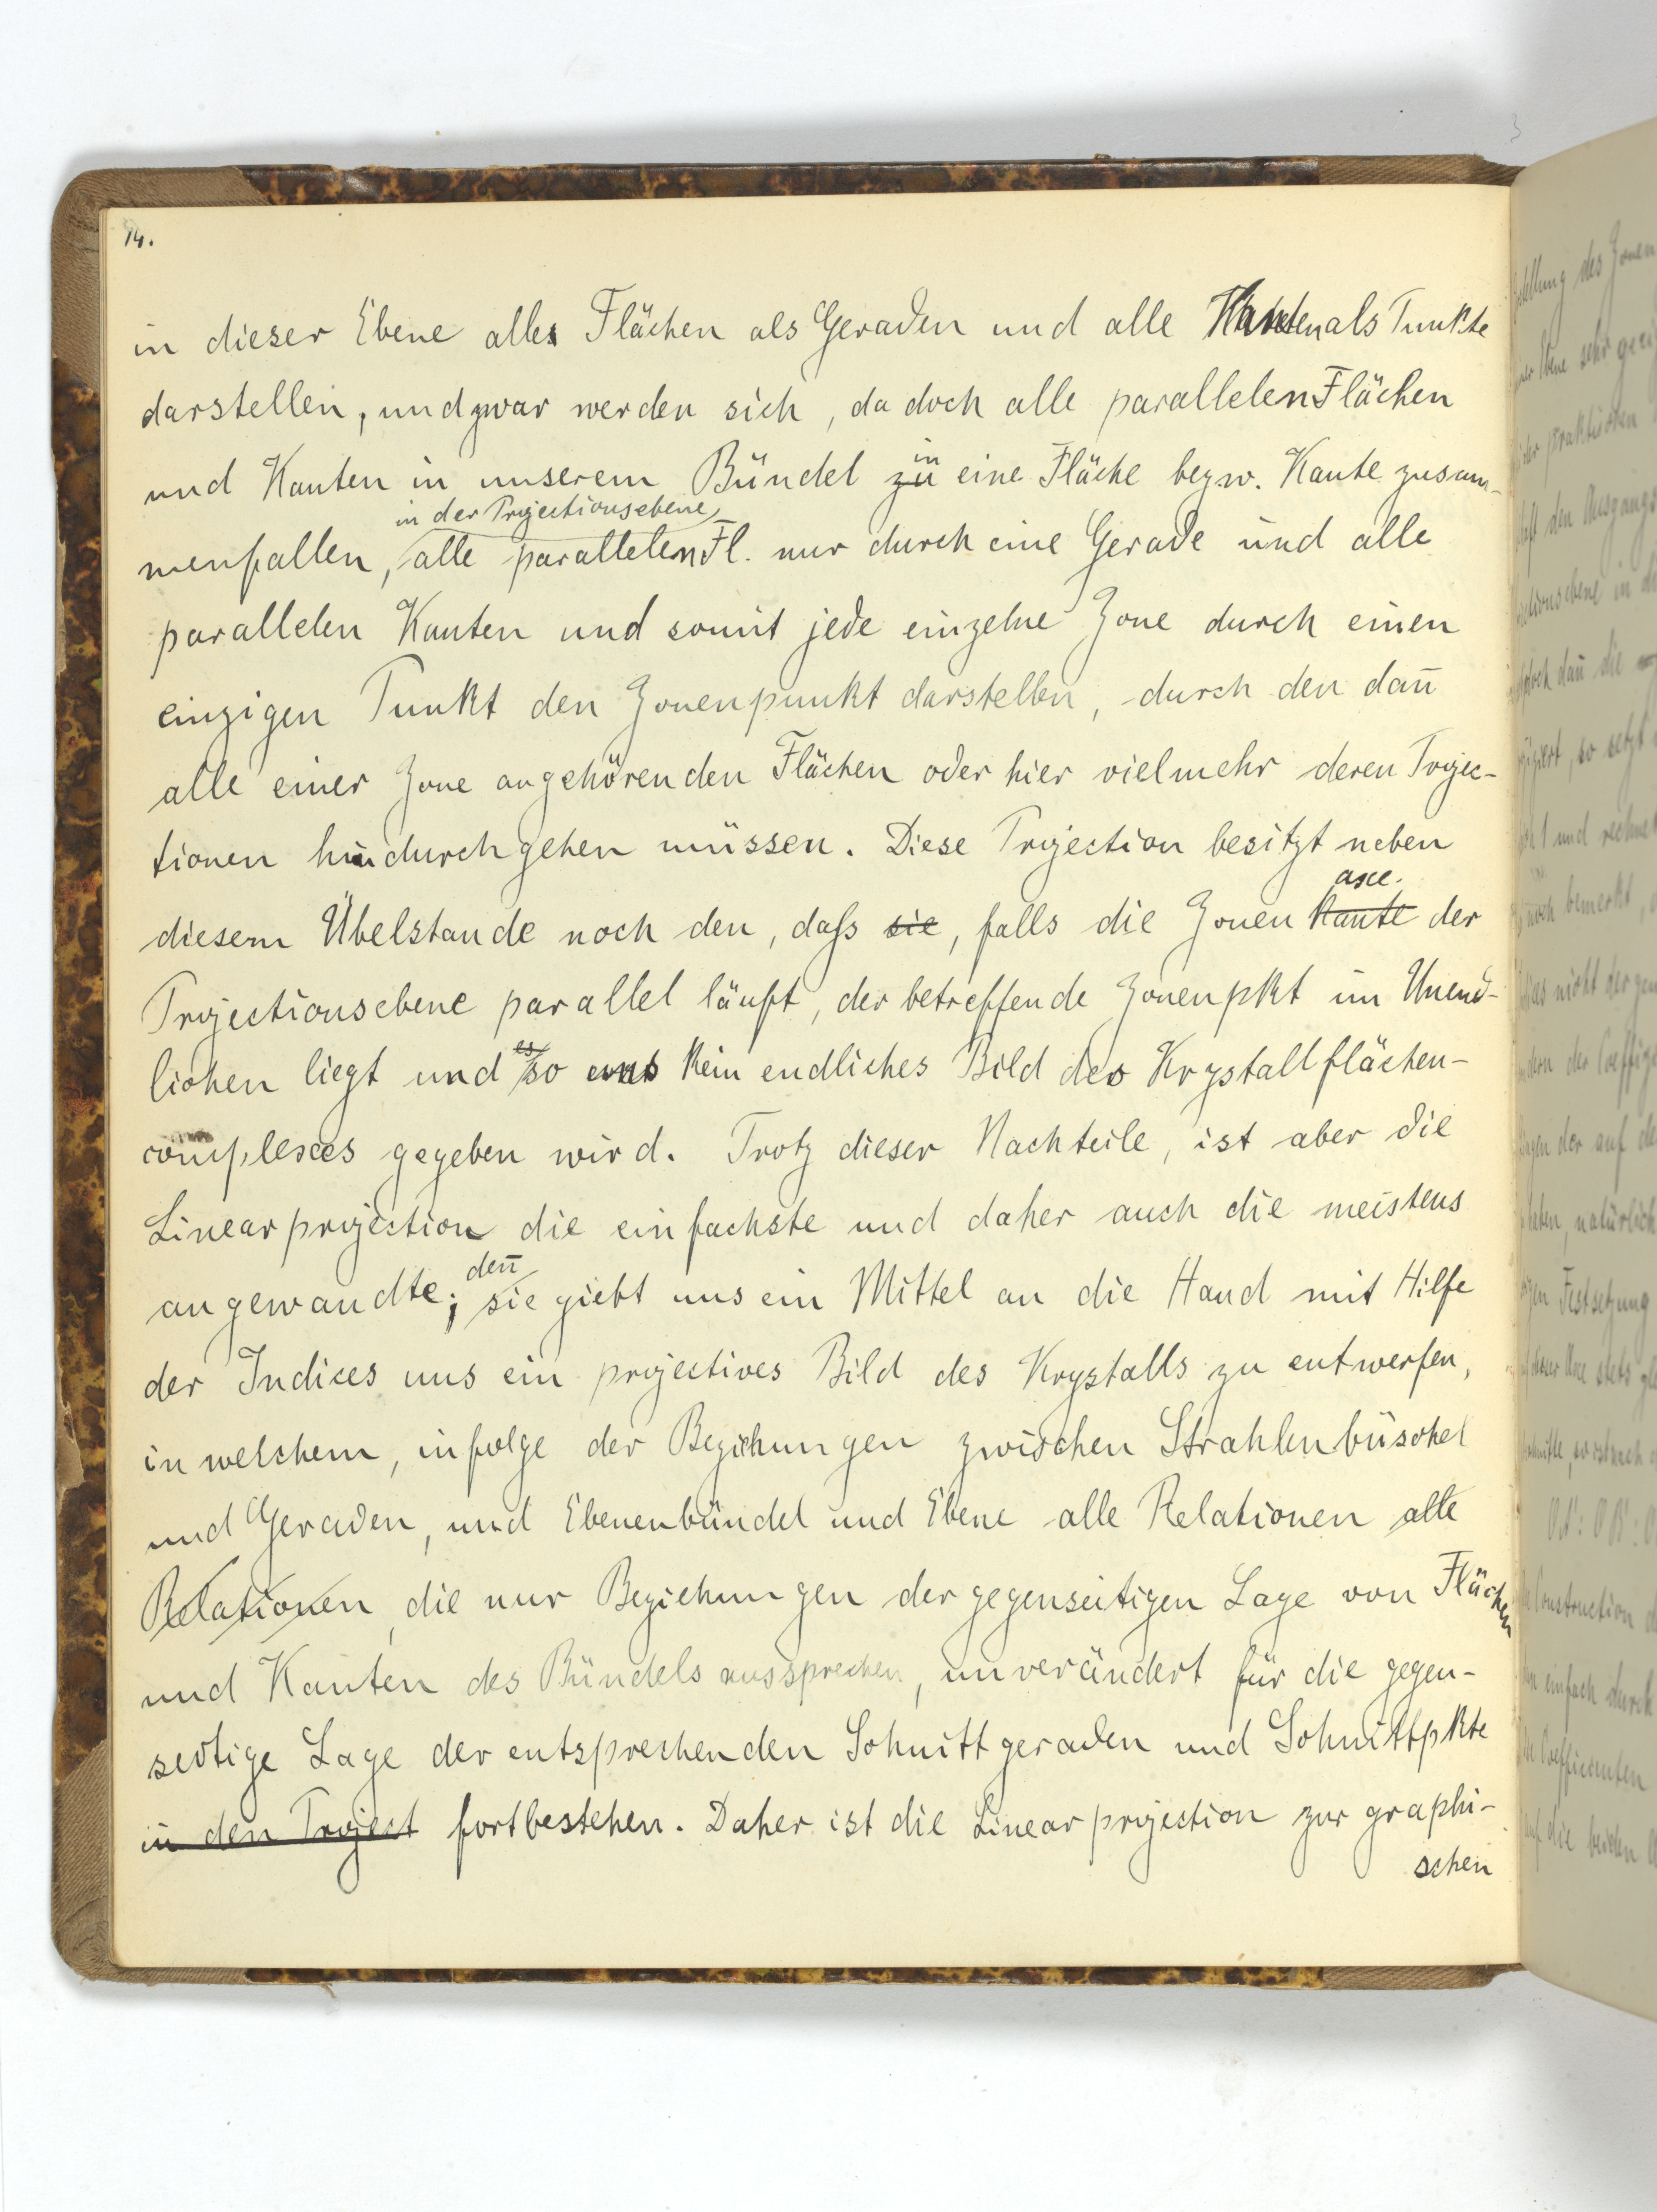 14.
in dieser Ebene alle Flächen als Geraden und alle Kanten als Punkte
darstellen, und zwar werden sich, da doch alle parallelen Flächen
und Kanten in unserem Bündel zu in eine Fläche bezw. Kante zusam-
in der Projectionsebene
menfallen, alle parallelen Fl. nur durch eine Gerade und alle
parallelen Kanten und somit jede einzelne Zone durch einen
einzigen Punkt den Zonenpunkt darstellen, durch den dan̄
alle einer Zone angehörenden Flächen oder hier vielmehr deren Projec-
tionen hindurchgehen müssen. Diese Projection besitzt neben
axe.
diesem Übelstande noch den, daſs sie, falls die Zonen Kante der
Projectionsebene parallel läuft, der betreffende Zonenpkt im Unend-
lichen liegt und es so uns kein endliches Bild des Krystallflächen-
complexes gegeben wird. Trotz dieser Nachteile, ist aber die
Linearprojection die einfachste und daher auch die meistens
den̄
angewandte; sie giebt uns ein Mittel an die Hand mit Hilfe
der Indices uns ein projectives Bild des Krystalls zu entwerfen,
in welchem, infolge der Beziehungen zwischen Strahlenbüschel
und Geraden, und Ebenenbündel und Ebene alle Relationen alle
Relationen, die nur Beziehungen der gegenseitigen Lage von Flächen
und Kanten des Bündels aussprechen, unverändert für die gegen-
seitige Lage der entsprechenden Schnittgeraden und Schnittpkte
in den Project fortbestehen. Daher ist die Linearprojection zur graphi-
schen